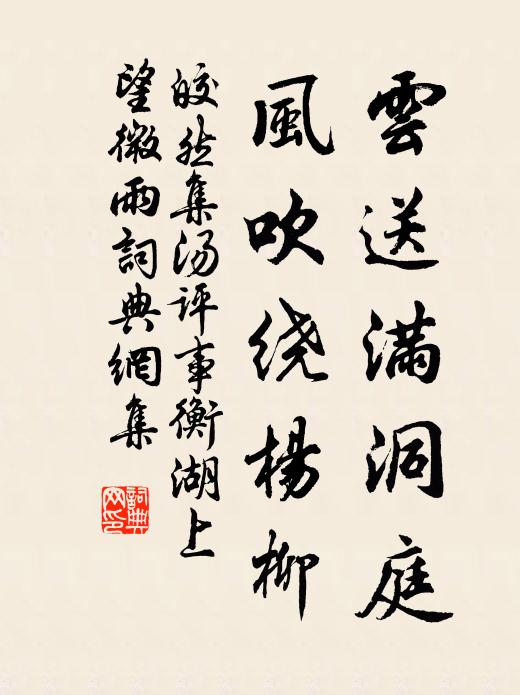 雲送滿洞庭
風吹绕楊柳
皎然集汤评事衡湖上
望微雨詞典網集
詞典网印